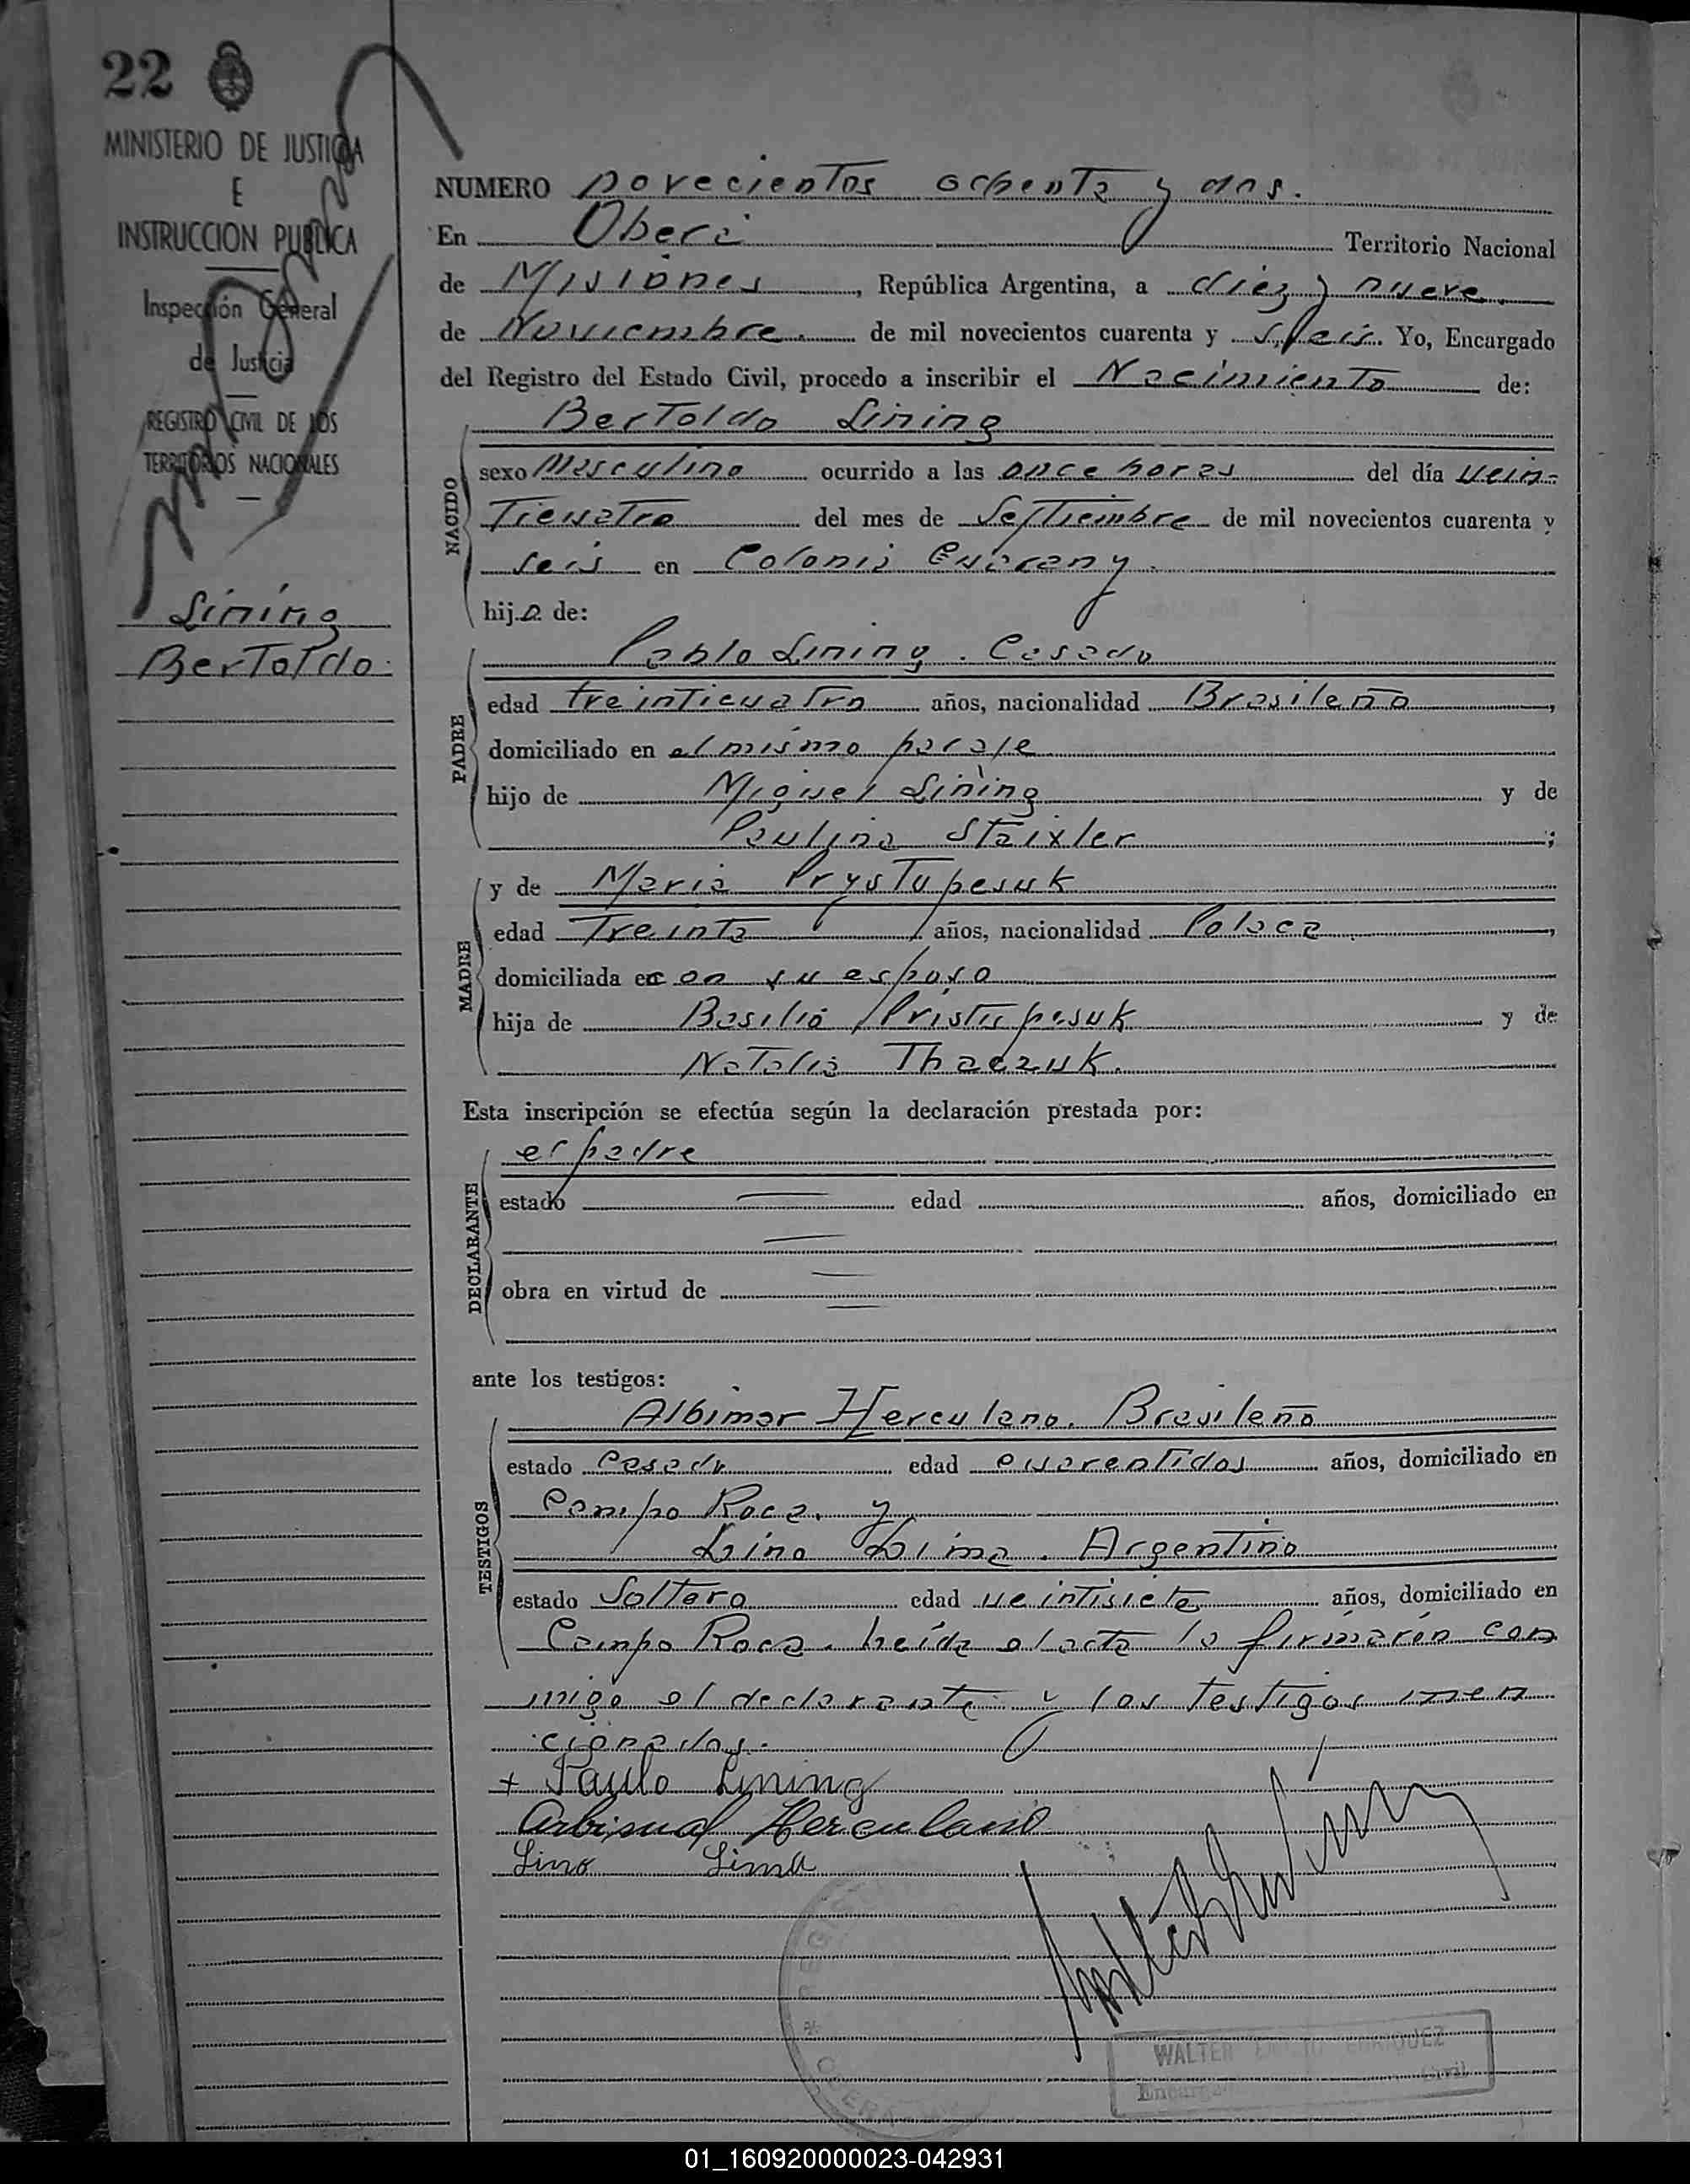 22
MINISTERIO DE JUSTICIA
E
INSTRUCCION PUBLICA
Inspección General
de Justicia
REGISTRO CIVIL DE LOS
TERRITORIOS NACIONALES
Lining
Bertoldo.
NUMERO novecientos ochenta y dos.
En Oberá Territorio Nacional
de Misiones, República Argentina, a diez y nueve
de Noviembre. de mil novecientos cuarenta y seis. Yo, Encargado
del Registro del Estado Civil, procedo a inscribir el Nacimiento de:
Bertoldo Lining
NACIDO
sexo Masculino ocurrido a las once horas del día vein-
ticuatro del mes de Septiembre de mil novecientos cuarenta y
seis en Colonia Guarany.
hijo de:
Pablo Lining. Casado
PADRE
edad treinticuatro años, nacionalidad Brasileño,
domiciliado en el mismo paraje
hijo de Miguel Lining y de
Paulina Staixler;
MADRE
y de Maria Prystupesuk
edad Treinta años, nacionalidad Polaca,
domiciliada con su esposo
hija de Basilio Pristupesuk y de
Natalia Thaczuk.
Esta inscripción se efectúa según la declaración prestada por:
DECLARANTE
el padre
estado edad años, domiciliado en
obra en virtud de
ante los testigos:
TESTIGOS
Albimar Herculano. Brasileño
estado Casado edad cuarentidos años, domiciliado en
Campo Roca. y
Lino Lima. Argentino
estado Soltero edad veintisiete años, domiciliado en
Campo Roca. Leída el acta la firmarón con
migo el declarante y los testigos men
cionados.
+ Paulo Lining
Herculano
Lino Lima
WALTER ENRIQUEZ
Civil
OBERA
01_160920000023-042931